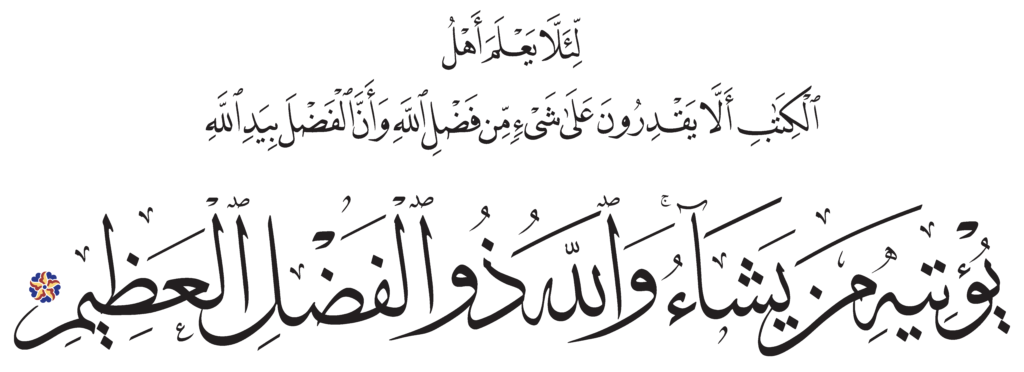 لِّئَلَّا يَعْلَمَ أَهْلُ
ٱلْكِتَٰبِ أَلَّا يَقْدِرُونَ عَلَىٰ شَىْءٍ مِّن فَضْلِ ٱللَّهِ وَأَنَّ ٱلْفَضْلَ بِيَدِ ٱللَّهِ
يُؤْتِيهِ مَن يَشَآءُ ۚ وَٱللَّهُ ذُو ٱلْفَضْلِ ٱلْعَظِيمِ